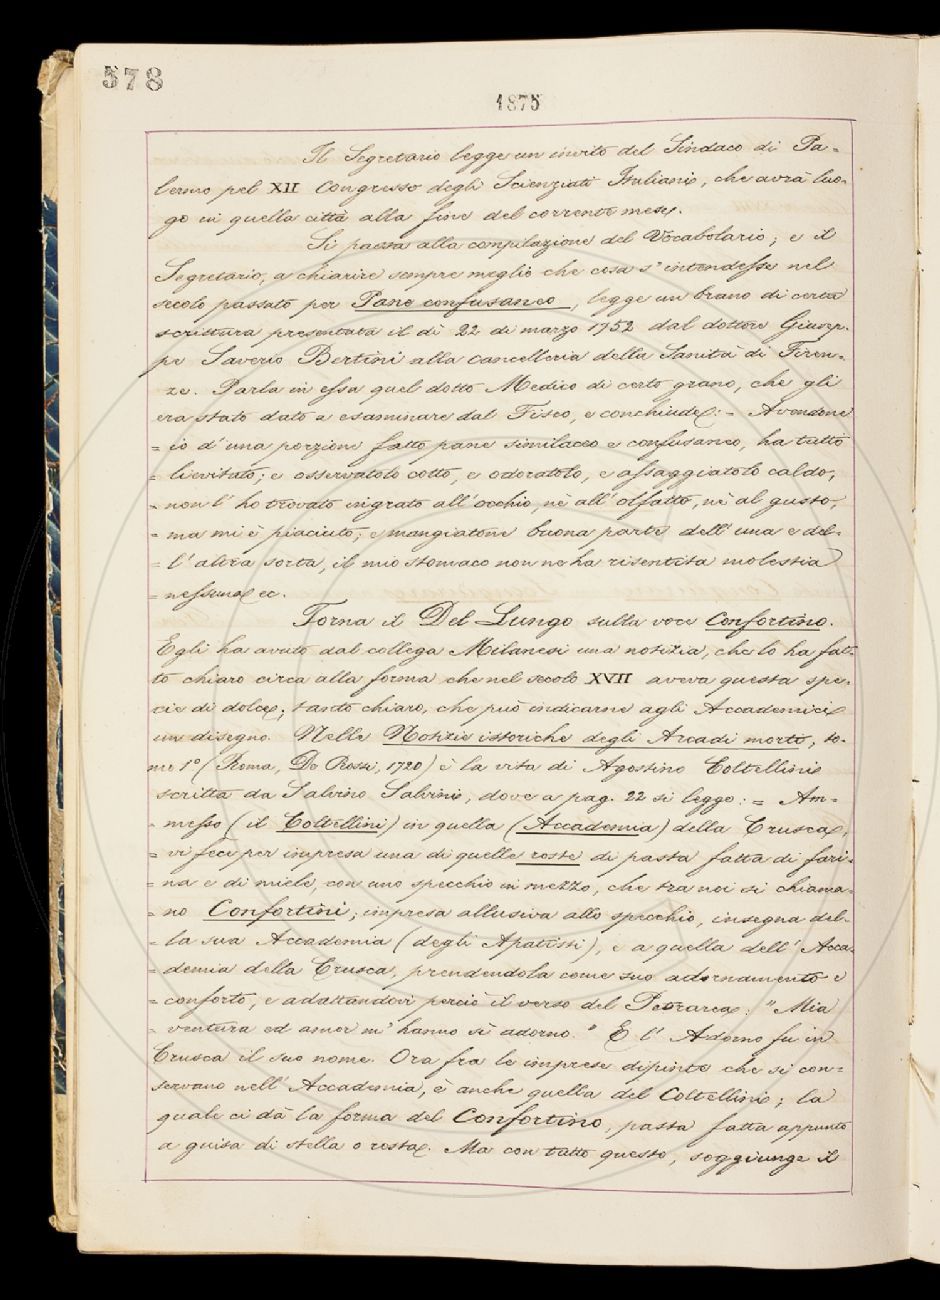 578
1875
Il Segretario legge un invito del Sindaco di Pa-
lermo pel XII Congresso degli Scienziati Italiani, che avrà luo-
go in quella città alla fine del corrente mese.
Si passa alla compilazione del Vocabolario; e il
Segretario, a chiarire sempre meglio che cosa s'intendesse nel
secolo passato per Pane confusaneo, legge un brano di certa
scrittura presentata il dì 22 di marzo 1752 dal dottore Giusep-
pe Saverio Bertini alla cancelleria della Sanità di Firen-
ze. Parla in essa quel dotto Medico di certo grano, che gli
era stato dato a esaminare dal Fisco, e conchiude: = Avendone
= io d'una porzione fatto pane similaceo e confusaneo, ha tutto
= lievitato; e osservatolo cotto, e odoratolo, e assaggiatolo caldo,
= non l'ho trovato ingrato all'occhio, nè all'olfatto, nè al gusto,
= ma mi è piaciuto; e mangiatone buona parte dell'una e del-
= l'altra sorta, il mio stomaco non ne ha risentita molestia
= nessuna ec.
Torna il Del Lungo sulla voce Confortino.
Egli ha avuto dal collega Milanesi una notizia, che lo ha fat-
to chiaro circa alla forma che nel secolo XVII aveva questa spe-
cie di dolce; tanto chiaro, che può indicarne agli Accademici
un disegno. Nelle Notizie istoriche degli Arcadi morti, to-
mo 1º (Roma, De Rossi, 1720) è la vita di Agostino Coltellini
scritta da Salvino Salvini, dove a pag. 22 si legge: = Am-
= messo (il Coltellini) in quella (Accademia) della Crusca,
= vi fece per impresa una di quelle roste di pasta fatta di fari-
= na e di miele, con uno specchio in mezzo, che tra noi si chiama-
= no Confortini; impresa allusiva allo specchio, insegna del-
= la sua Accademia (degli Apatisti), e a quella dell'Acca-
= demia della Crusca, prendendola come suo adornamento e
= conforto, e adattandovi perciò il verso del Petrarca: "Mia
= ventura ed amor m'hanno sì adorno." E l'Adorno fu in
Crusca il suo nome. Ora fra le imprese dipinte che si con-
servano nell'Accademia, è anche quella del Coltellini; la
quale ci dà la forma del Confortino, pasta fatta appunto
a guisa di stella o rosta. Ma con tutto questo, soggiunge il